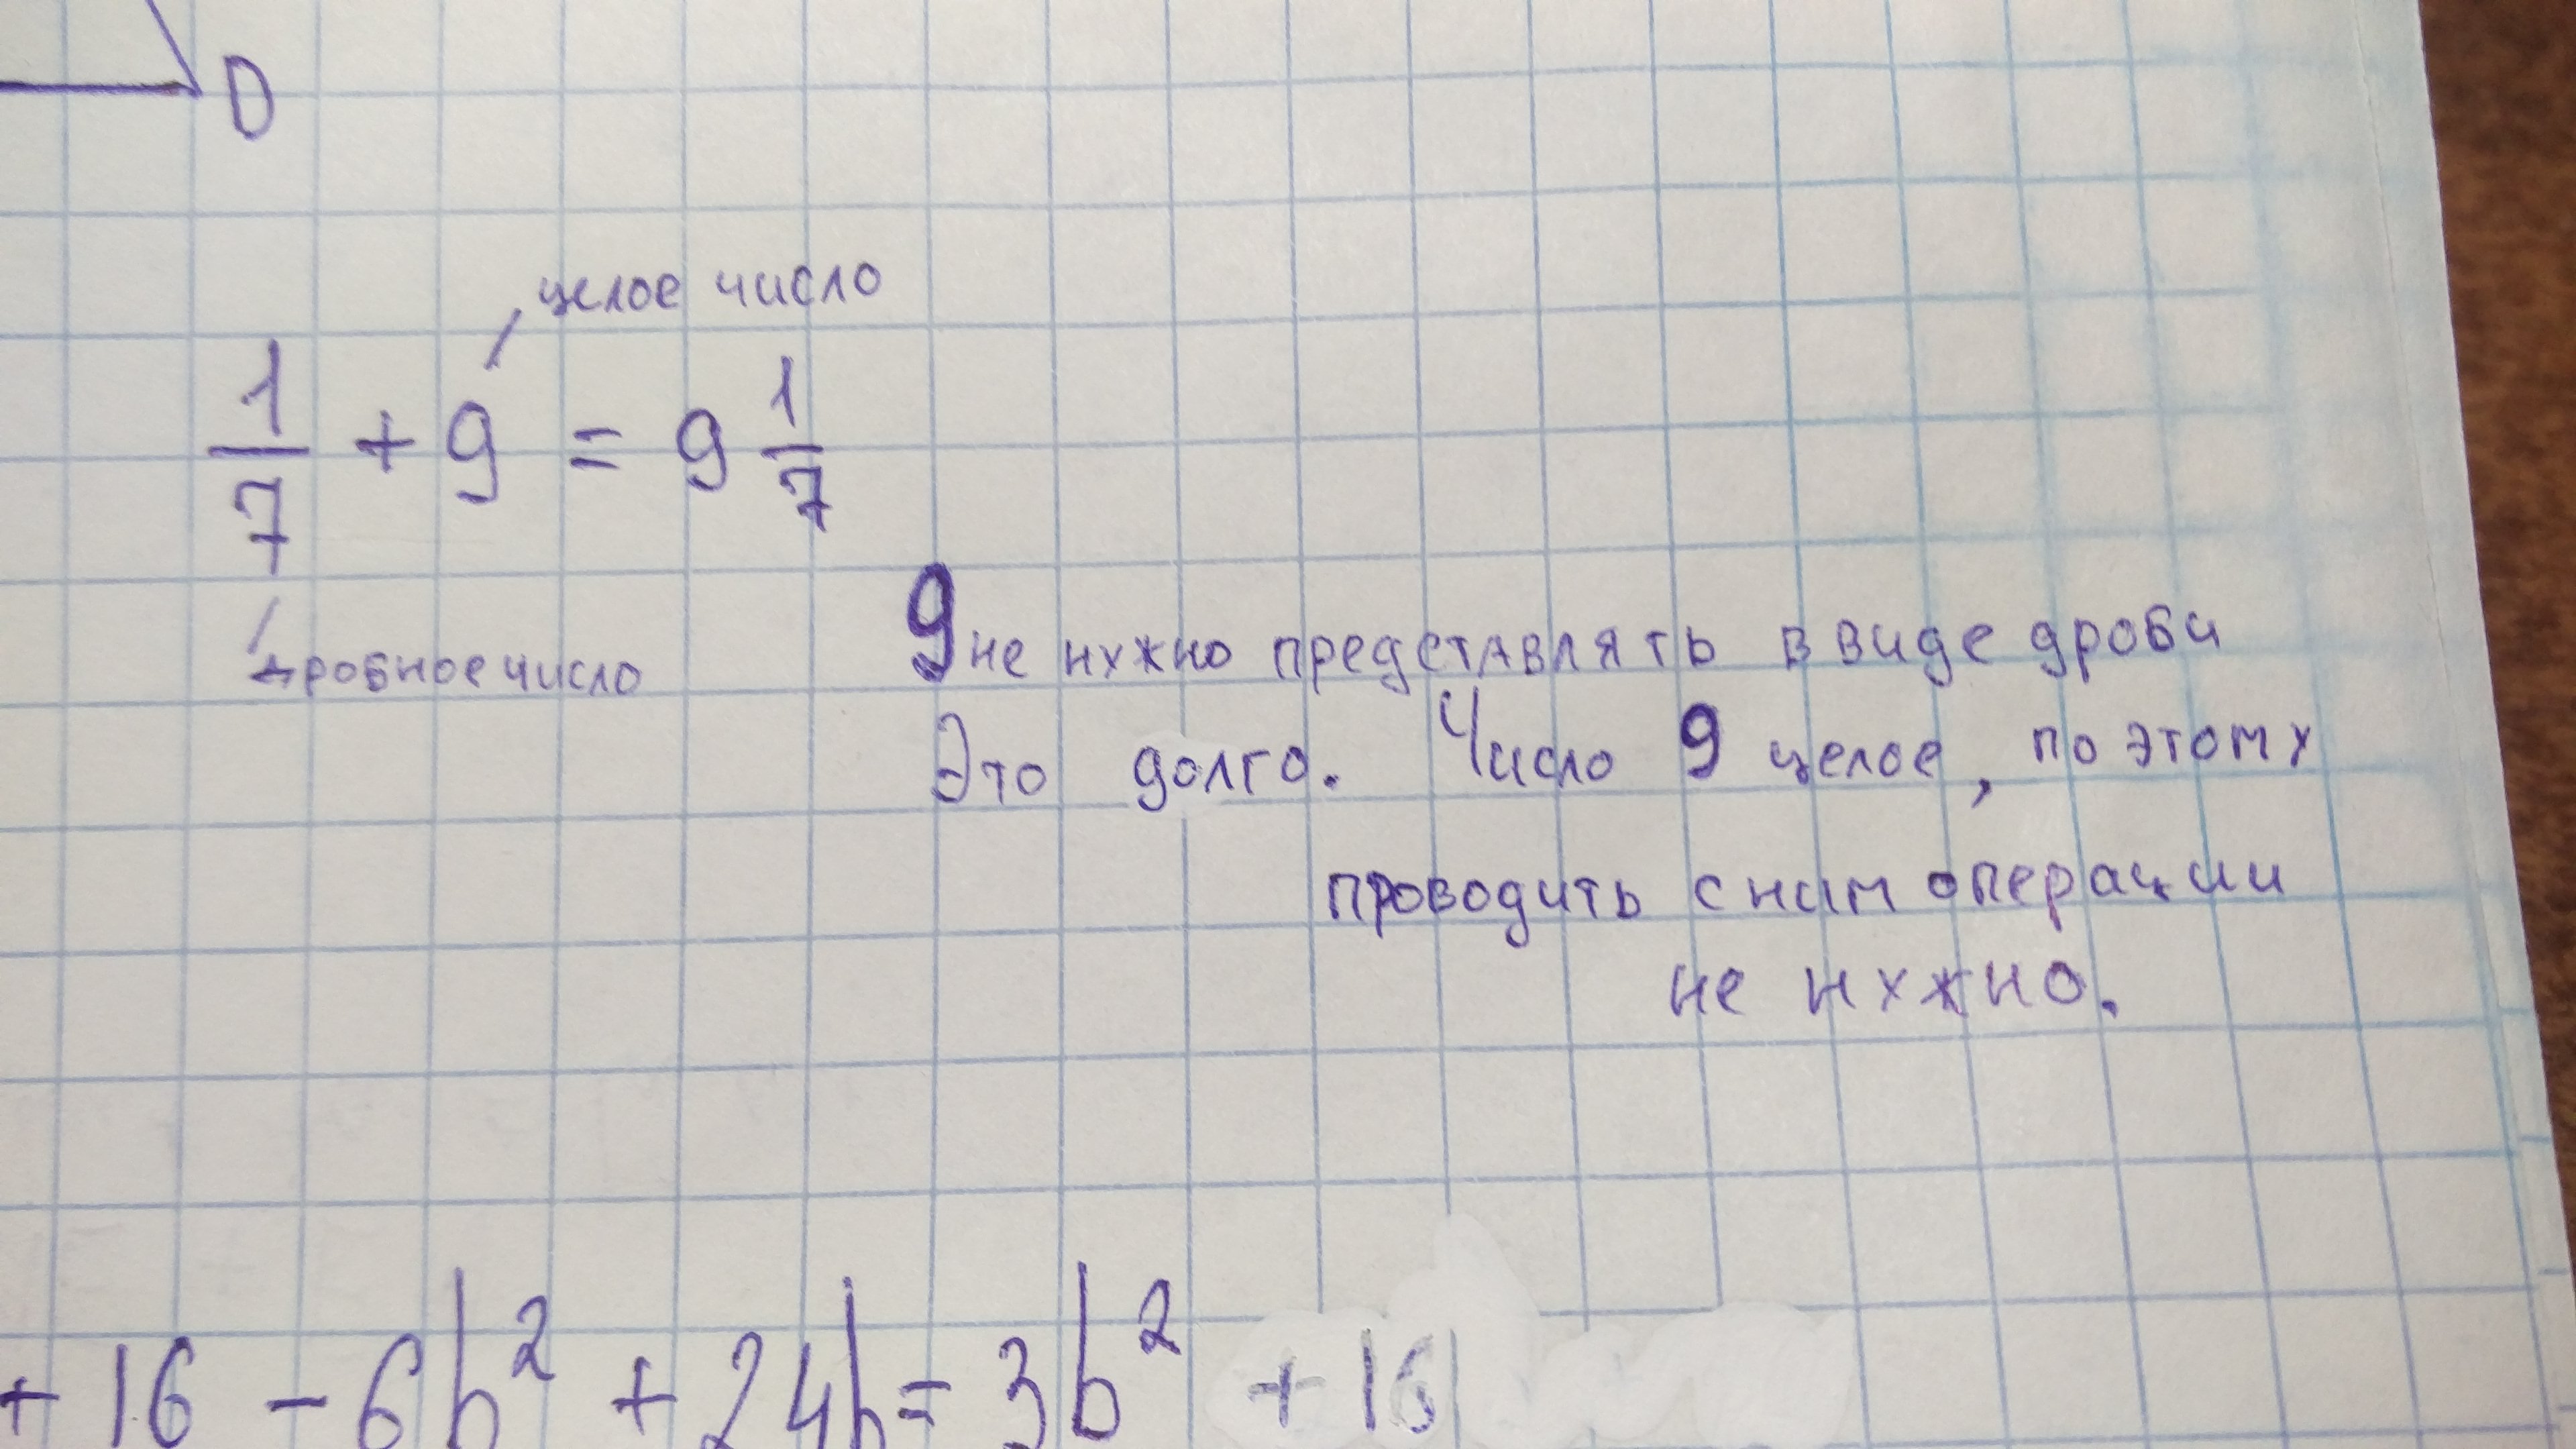 D
целое число
1/7 + 9 = 9 1/7
дробное число
9 не нужно представлять в виде дроби
Это долго. Число 9 целое, по этому
проводить с ним операции
не нужно.
+ 16 - 6b² + 24b = 3b² + 16